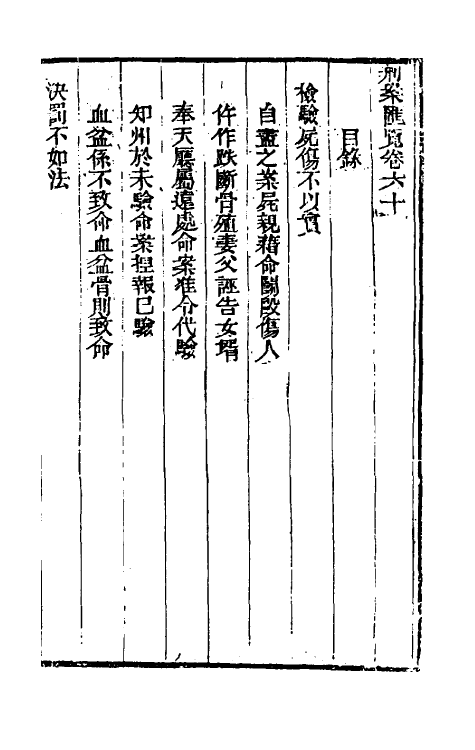 刑案匯覽卷六十
目錄
檢驗屍傷不以實
自盡之案屍親藉命鬬毆傷人
仵作跌斷骨殖妻父誣告女壻
奉天廳屬遠處命案准令代驗
知州於未驗命案捏報已驗
血盆係不致命血盆骨則致命
決罰不如法